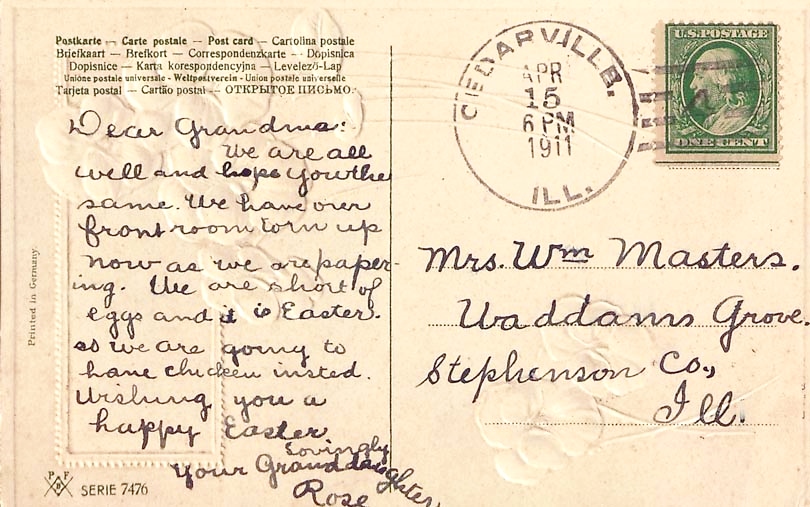 Postkarte — Carte postale — Post card — Cartolina postale
Briefkaart — Brefkort — Correspondenzkarte — Dopisnica
Dopisnice — Karta korespondencyjna — Levelező-Lap
Unione postale universale - Weltpostverein - Union postale universelle
Tarjeta postal — Cartão postal — ОТКРЫТОЕ ПИСЬМО.
Dear Grandma:
We are all
well and hope you the
same. We have our
front room torn up
now as we are paper-
ing. We are short of
eggs and it is Easter.
so we are going to
have chicken insted.
Wishing you a
happy Easter
Lovingly
Your Granddaughter,
Rose
Printed in Germany
PFB
SERIE 7476
CEDARVILLE.
APR
15
6 PM
1911
ILL.
U.S. POSTAGE
ONE CENT
Mrs. Wm Masters.
Waddams Grove.
Stephenson Co.,
Ill.